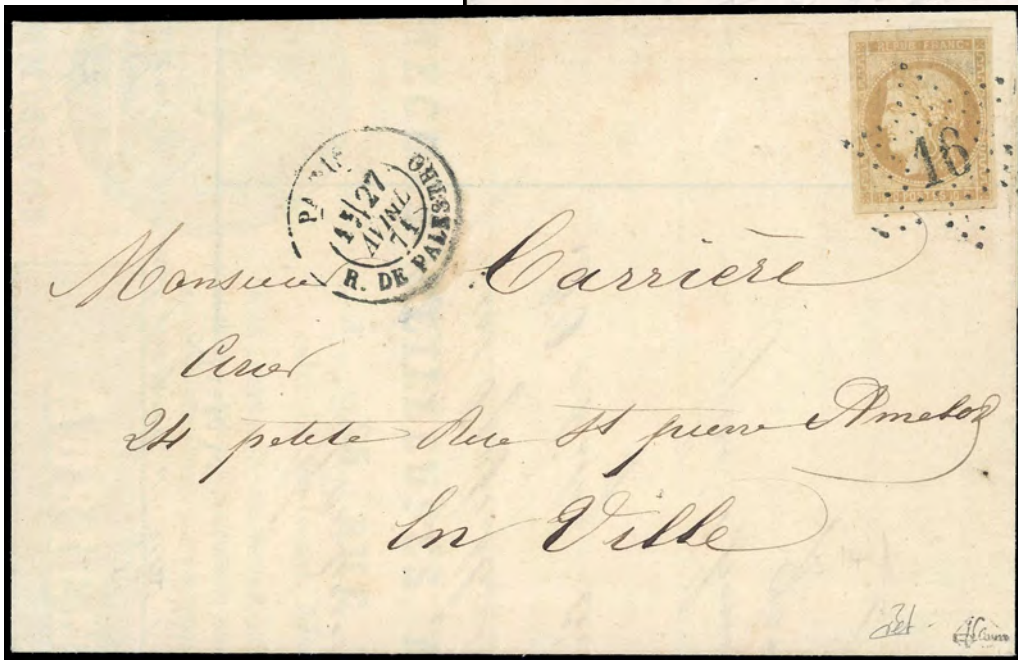 REPUB. FRANC.
16
10 POSTES 10
PARIS
27
AVRIL
71
R. DE PALESTRO
Monsieur Carrière
24 petite Rue St pierre Amelot
En Ville